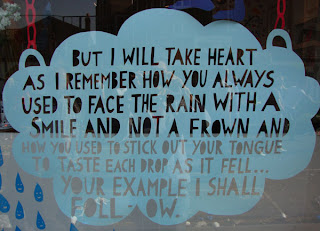 BUT I WILL TAKE HEART
AS I REMEMBER HOW YOU ALWAYS
USED TO FACE THE RAIN WITH A
SMILE AND NOT A FROWN AND
HOW YOU USED TO STICK OUT YOUR TONGUE
TO TASTE EACH DROP AS IT FELL...
YOUR EXAMPLE I SHALL
FOLL-OW.